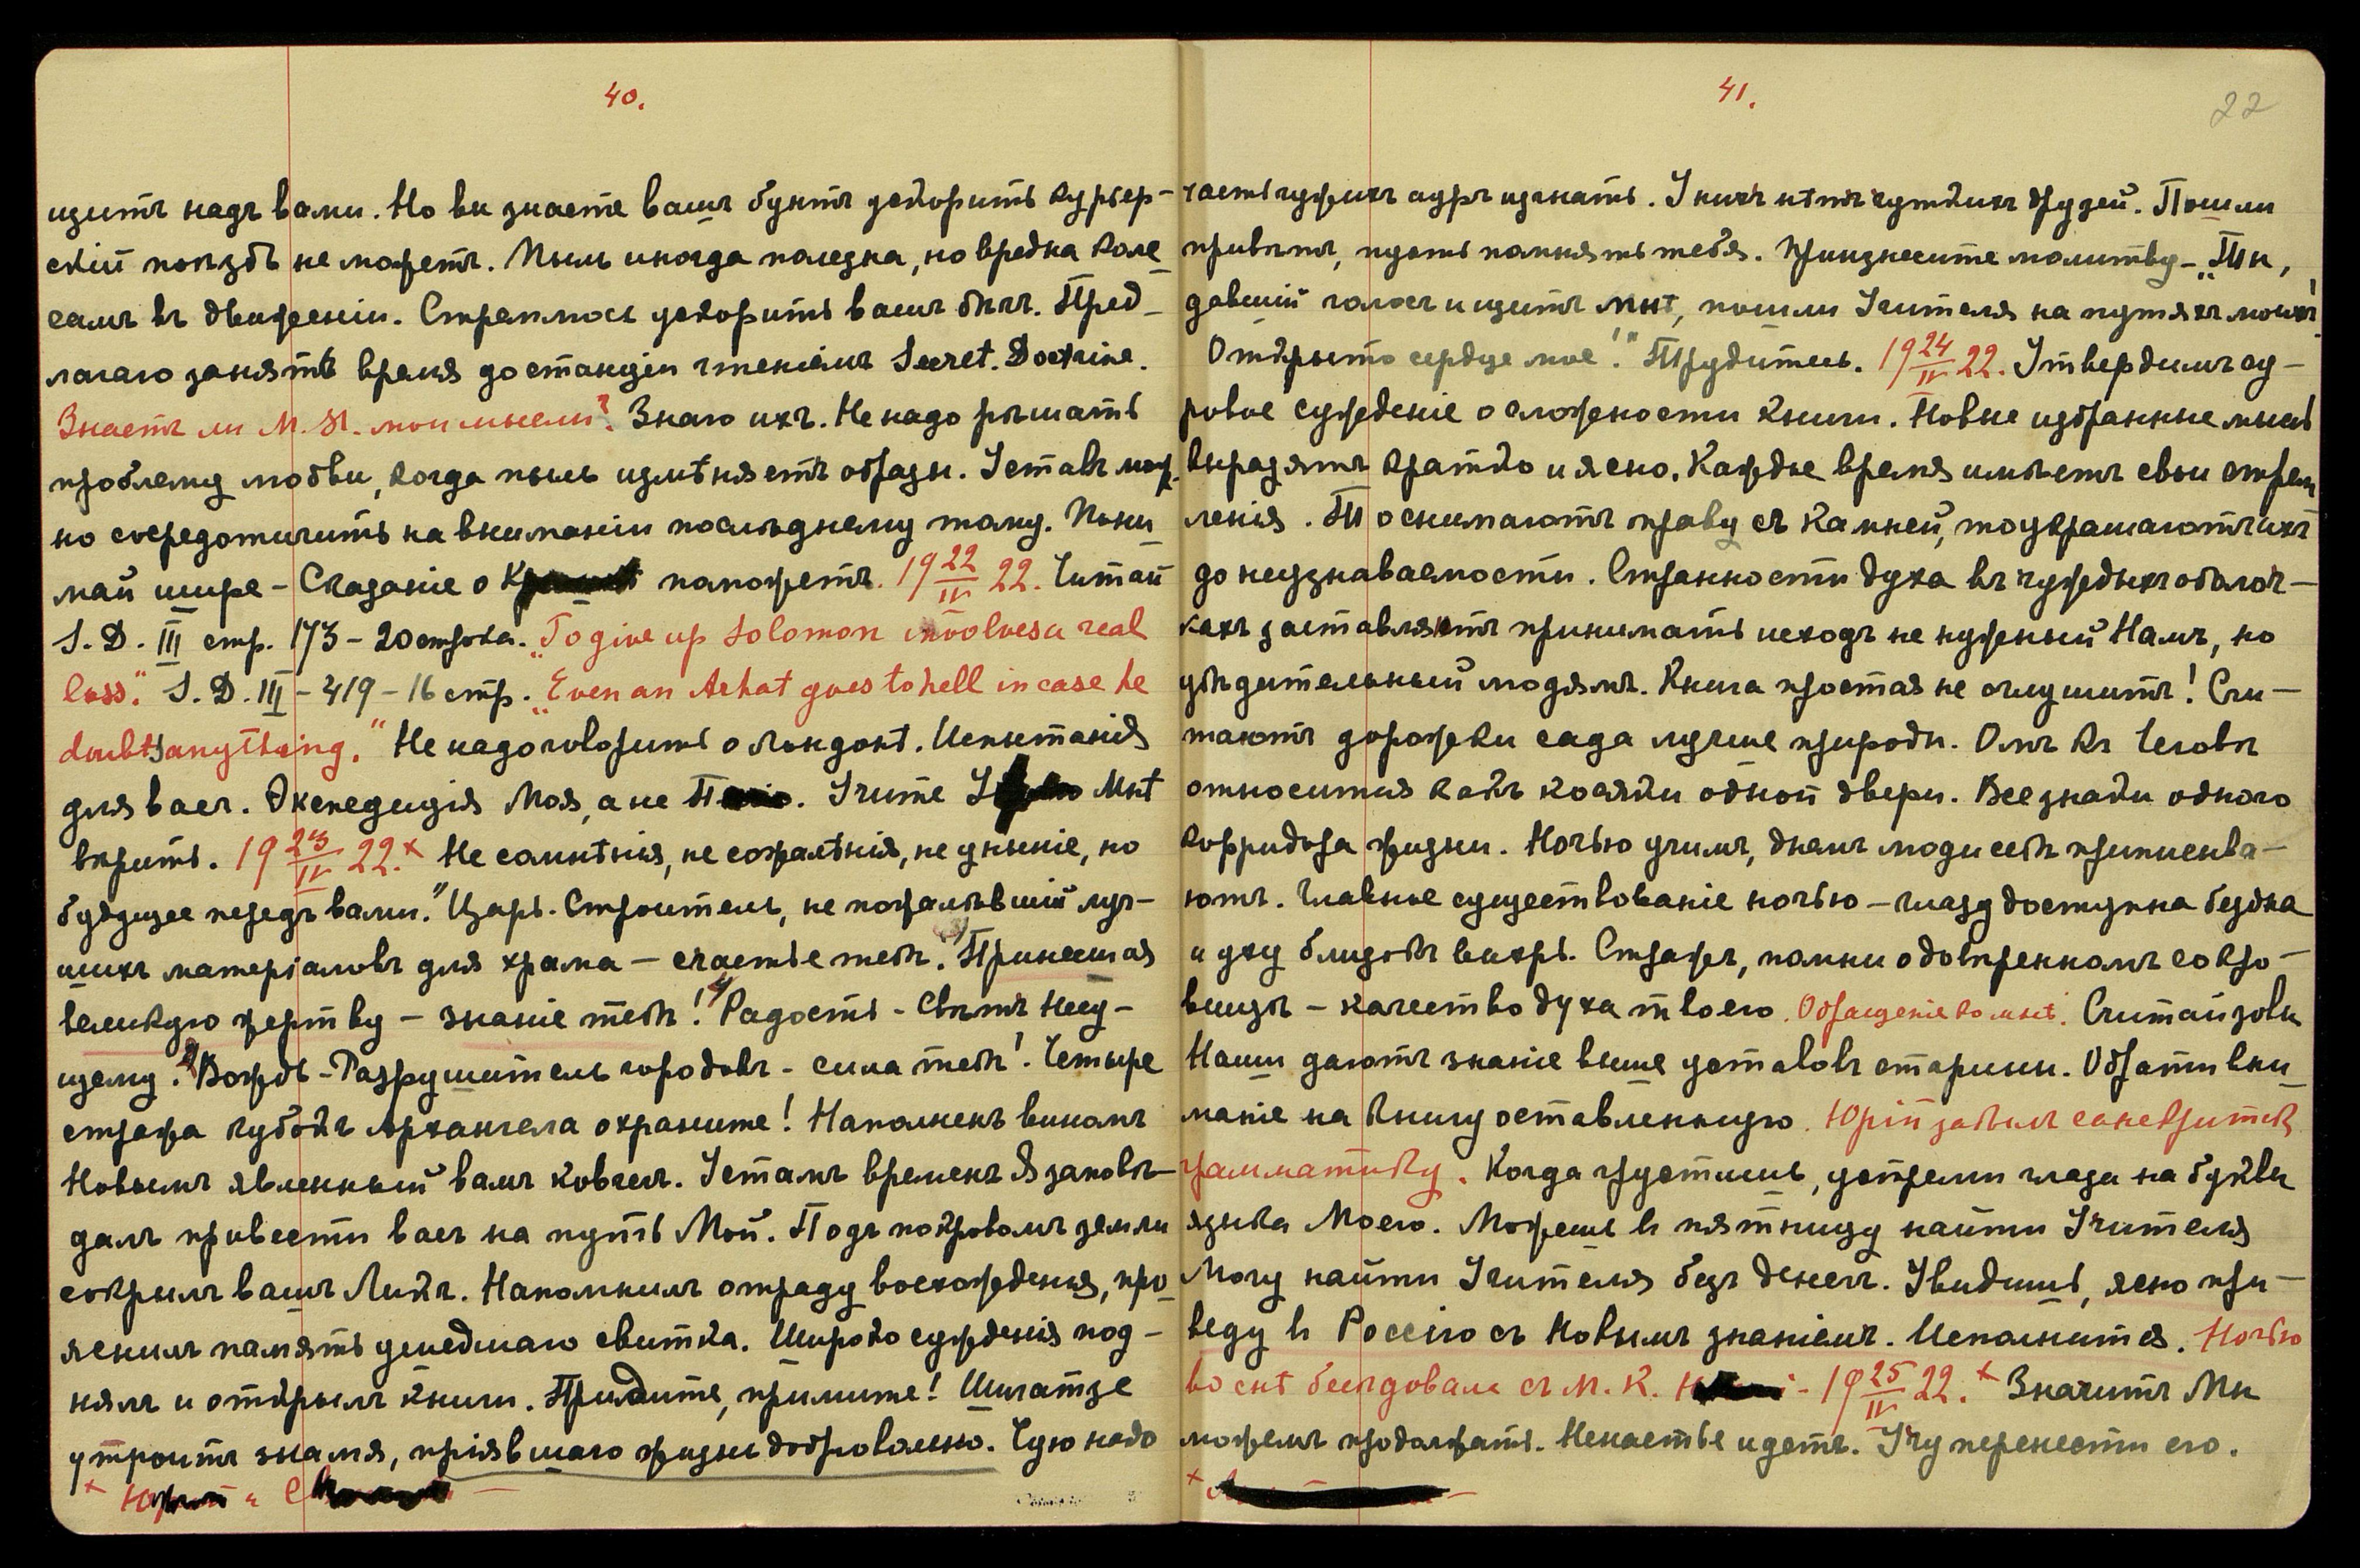 40.
щитъ надъ вами. Но вы знаете вашъ бунтъ ускорить курьер-
скій поѣздъ не можетъ. Пыль иногда полезна, но вредна коле
самъ въ движеніи. Стремлюсь ускорить вашъ бѣгъ. Пред-
лагаю занять время до станціи чтеніемъ Secret. Doctrine.
Знаетъ ли М. Я. мои мысли? Знаю ихъ. Не надо рѣшать
проблему любви, когда пыль измѣняетъ образы. Уставъ мож-
но сосредоточить на вниманіи послѣднему тому. Пони
май шире - Сказаніе о поможетъ. 19 22/IV 22. Читай
S. D. III стр. 173 - 20 строка. "To give up Solomon involves a real
loss." S. D. III - 419 - 16 стр. "Even an Arhat goes to hell in case he
doubts anything." Не надо говорить о Лондонѣ. Испытанія
для васъ. Экспедиція Моя, а не . Учите Мнѣ
вѣрить. 19 23/IV 22.x Не сомнѣнія, не сожалѣнія, не уныніе, но
будущее передъ вами." Царь-Строитель, не пожалѣвшій луч-
шихъ матеріаловъ для храма - счастье тебѣ." Принесшая
великую жертву - знаніе тебѣ! Радость - Свѣтъ Несу-
щему. Вождь-Разрушитель городовъ - сила тебѣ! Четыре
стража кубокъ Архангела охраните! Наполненъ виномъ
Новымъ явленный вамъ ковчегъ. Устамъ временъ Я заповѣ-
далъ привести васъ на путь Мой. Подъ покровомъ земли
сокрылъ вашъ Ликъ. Наполнилъ отраду восхожденья, про
яснилъ память ушедшаго свитка. Широко сужденія под-
нялъ и открылъ книги. Придите, примите! Шигатзе
утроитъ знамя, пріявшаго жизнь добровольно. Чую надо
x Юрій и
41.
22
часть чужихъ ауръ изгнать. У нихъ нѣтъ чуткихъ друзей. Пошли
привѣтъ, пусть помнятъ тебя. Произнесите молитву - "Ты,
давшій голосъ и щитъ мнѣ, пошли Учителя на путяхъ моихъ!
Открыто сердце мое!" Трудитесь. 19 24/IV 22. Утвердимъ су-
ровое сужденіе о сложности книги. Новые избранные мысль
выразятъ кратко и ясно. Каждое время имѣетъ свои стрем
ленія. То снимаютъ краску съ камней, то украшаютъ ихъ
до неузнаваемости. Странности духа въ чуждыхъ оболоч-
кахъ заставляютъ принимать исходъ не нужный Намъ, но
убѣдительный людямъ. Книга простая не оглушитъ! Счи-
таютъ дорожки сада лучше природы. Омъ къ Человѣ
относится какъ косяки одной двери. Всезнайки одного
корридора жизни. Ночью учимъ, днемъ люди себѣ приписыва-
ютъ. Главное существованіе ночью - глазу доступна бездна
и духу близокъ вихрь. Стражъ, помни о довѣренномъ сокро-
вищѣ - качество духа твоего. Обращеніе ко мнѣ. Считай зовы
Наши даютъ знаніе выше уставовъ старины. Обрати вни
маніе на книгу оставленную. Юрій забылъ санскритск
грамматику. Когда грустишь, устреми глаза на буквы
языка Моего. Можешь въ пятницу найти Учителя
Могу найти Учителя безъ денегъ. Увидишь, ясно при-
веду въ Россію съ Новымъ знаніемъ. Исполнится. Ночью
во снѣ бесѣдовала съ М. К. - 19 25/IV 22.x Значитъ Мы
можемъ продолжать. Ненастье идетъ. Учу перенести его.
x